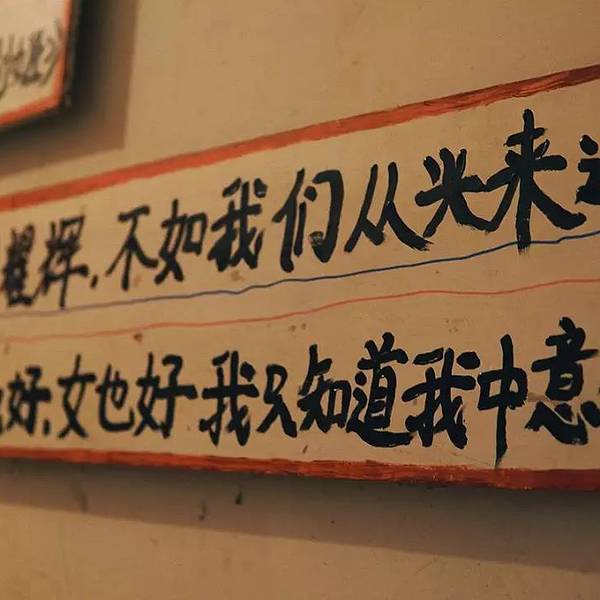 耀辉，不如我们从头来
好，文也好 我只知道我中意